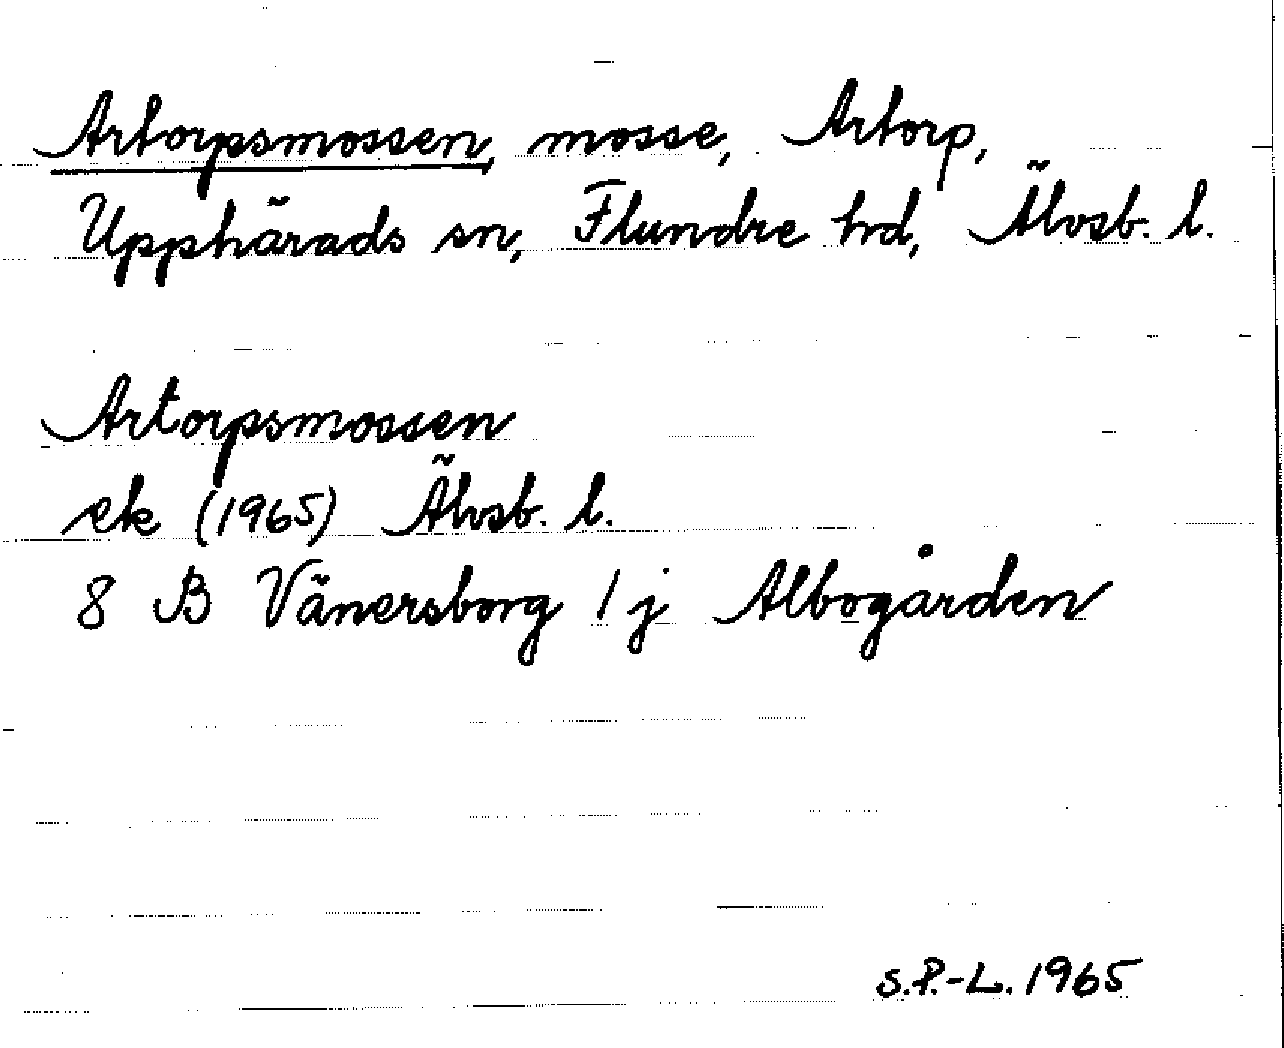 Artorpsmossen, mosse, Artorp,
Upphärads sn, Flundre hd, Älvsb. l.
Artorpsmossen
ek (1965) Älvsb. l.
8 B Vänersborg 1 j Albogården
S.P.-L. 1965